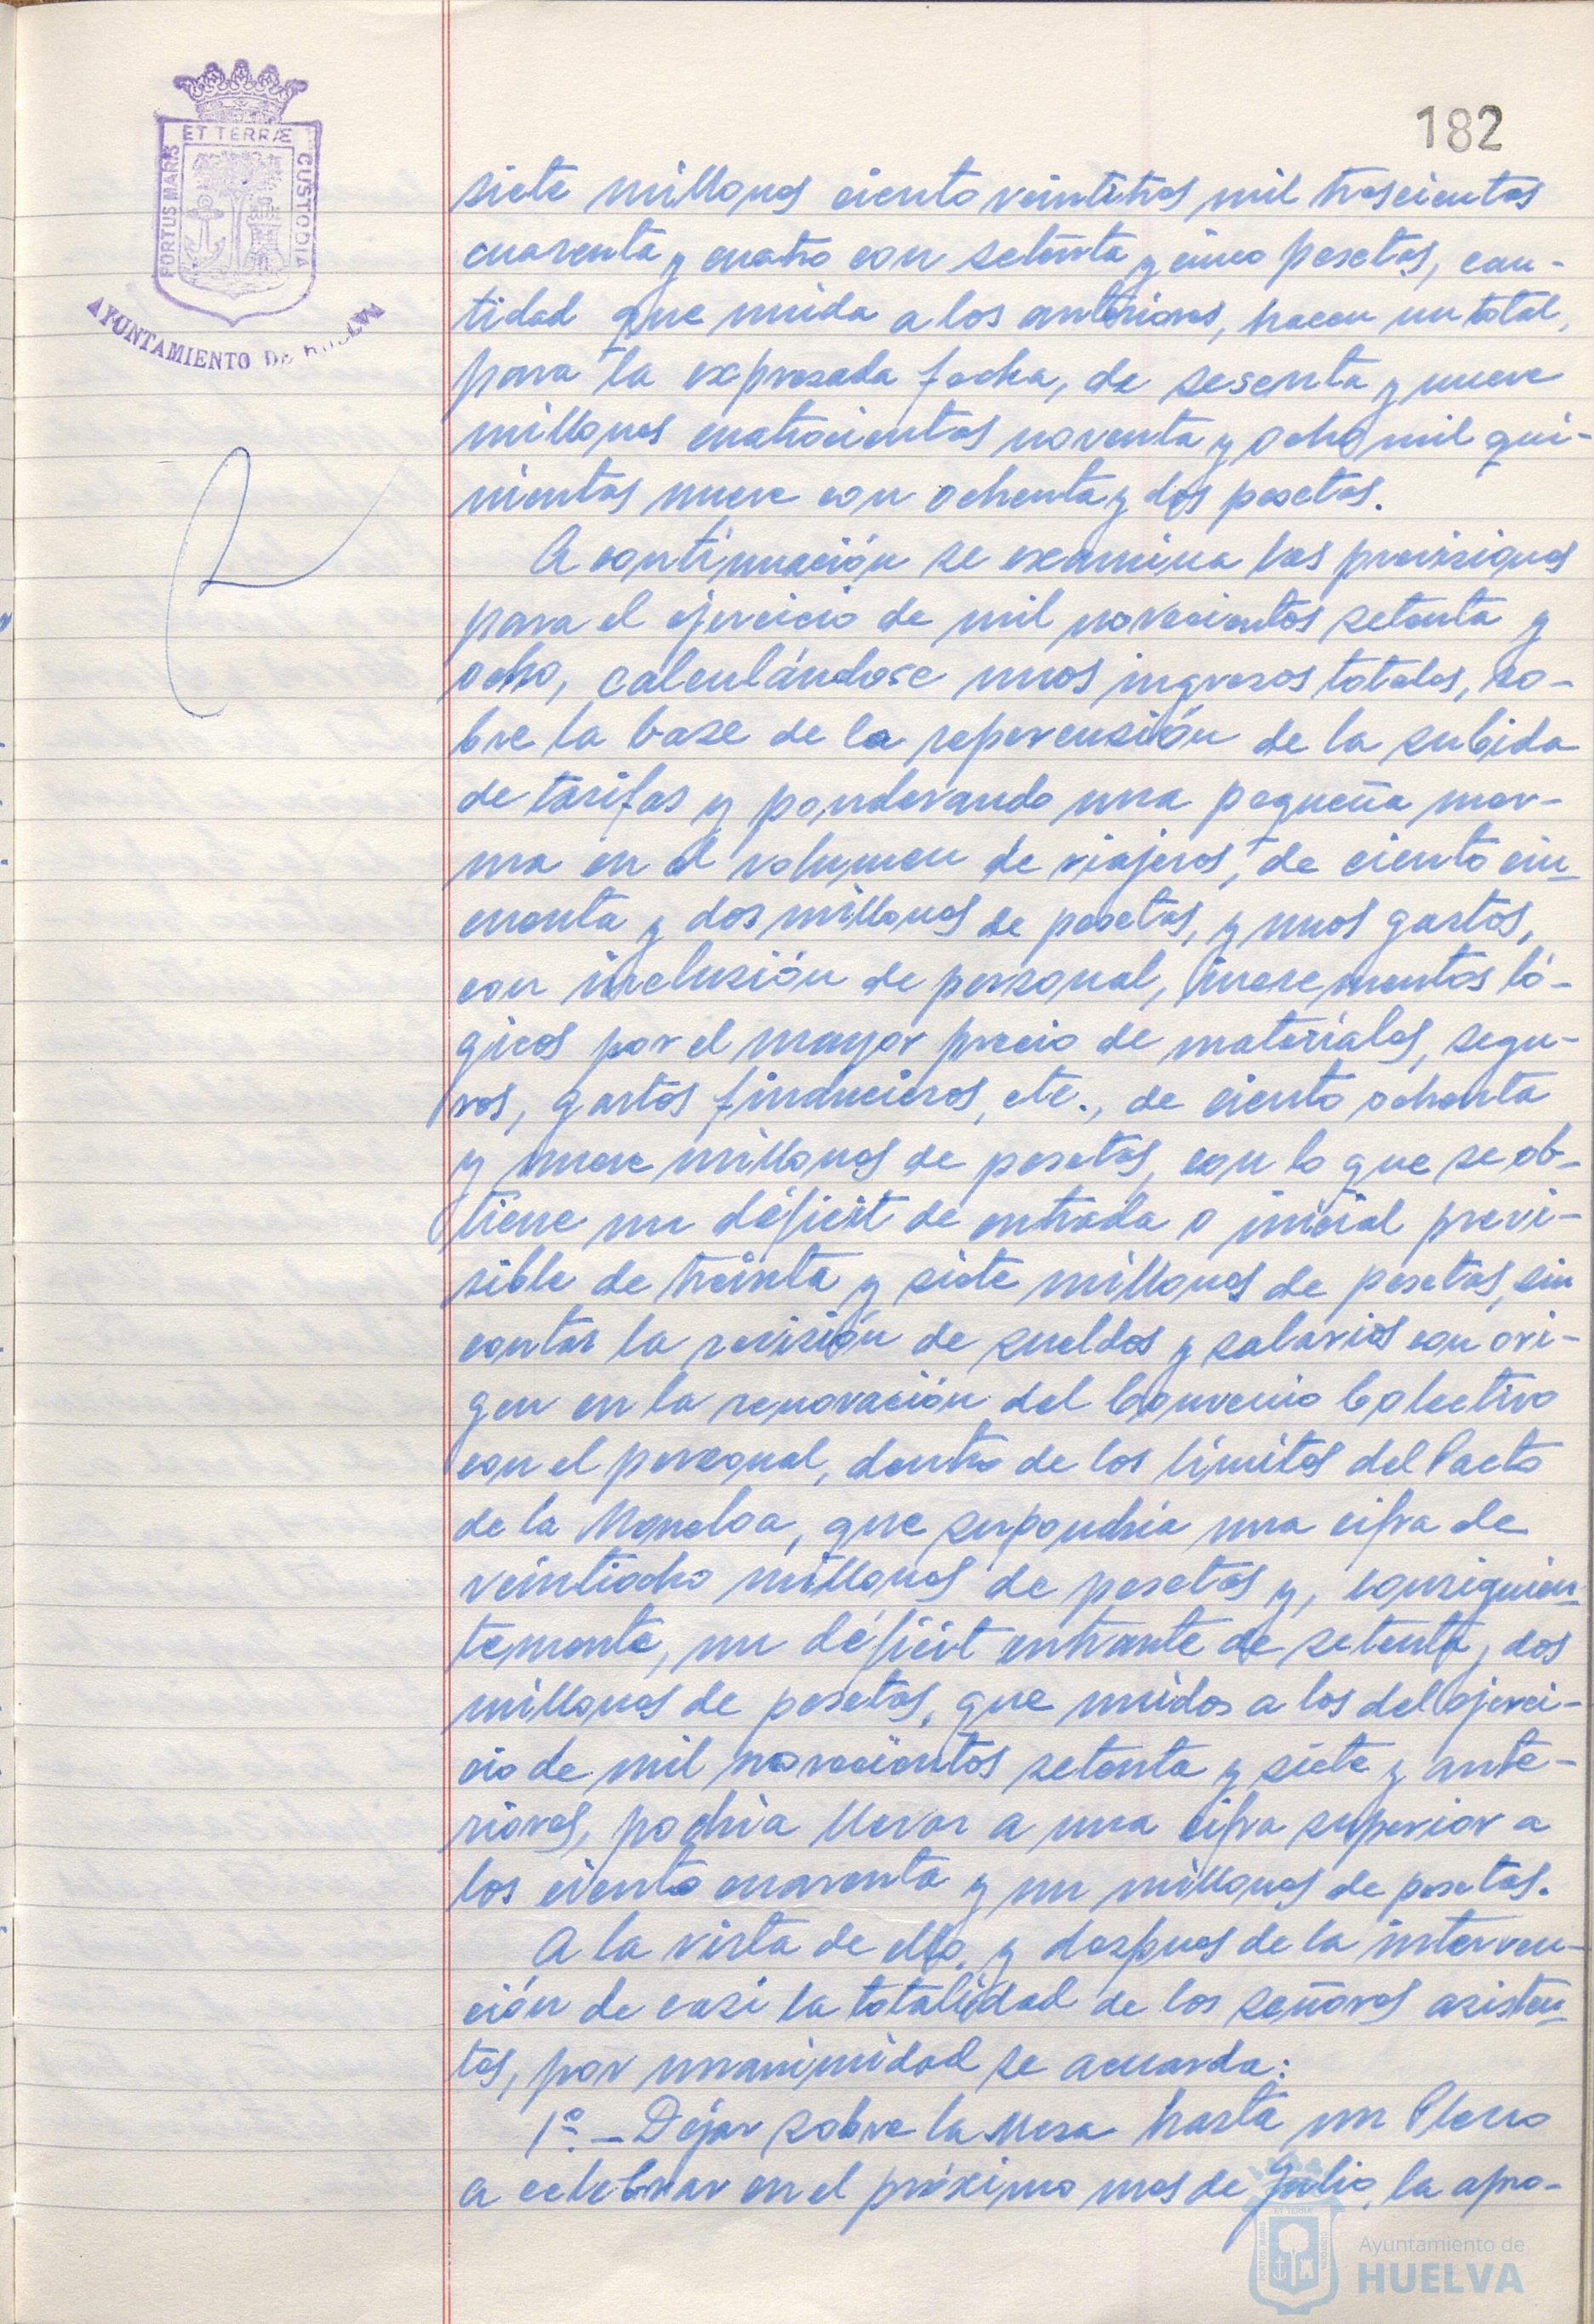 182
ET TERRÆ
PORTUS MARIS
CUSTODIA
AYUNTAMIENTO DE HUELVA
siete millones ciento veintitres mil trescientas
cuarenta y cuatro con setenta y cinco pesetas, can-
tidad que unida a los anteriores, hacen un total,
para la expresada fecha, de sesenta y nueve
millones cuatrocientas noventa y ocho mil qui-
nientas nueve con ochenta y dos pesetas.
A continuación se examina las previsiones
para el ejercicio de mil novecientos setenta y
ocho, calculándose unos ingresos totales, so-
bre la base de la repercusión de la subida
de tarifas y ponderando una pequeña mer-
ma en el volumen de viajeros, de ciento cin-
cuenta y dos millones de pesetas, y unos gastos,
con inclusión de personal, incrementos ló-
gicos por el mayor precio de materiales, segu-
ros, gastos financieros, etc., de ciento ochenta
y nueve millones de pesetas, con lo que se ob-
tiene un déficit de entrada o inicial previ-
sible de treinta y siete millones de pesetas, sin
contar la revisión de sueldos y salarios con ori-
gen en la renovación del Convenio Colectivo
con el personal, dentro de los límites del Pacto
de la Moncloa, que supondría una cifra de
veintiocho millones de pesetas y, consiguien-
temente, un déficit entrante de setenta y dos
millones de pesetas, que unidos a los del ejerci-
cio de mil novecientos setenta y siete y ante-
riores, podría llevar a una cifra superior a
los ciento cuarenta y un millones de pesetas.
A la vista de ello, y despues de la interven-
ción de casi la totalidad de los señores asisten-
tes, por unanimidad se acuerda:
1º.- Dejar sobre la Mesa hasta un Pleno
a celebrar en el próximo mes de Julio, la apro-
Ayuntamiento de
HUELVA